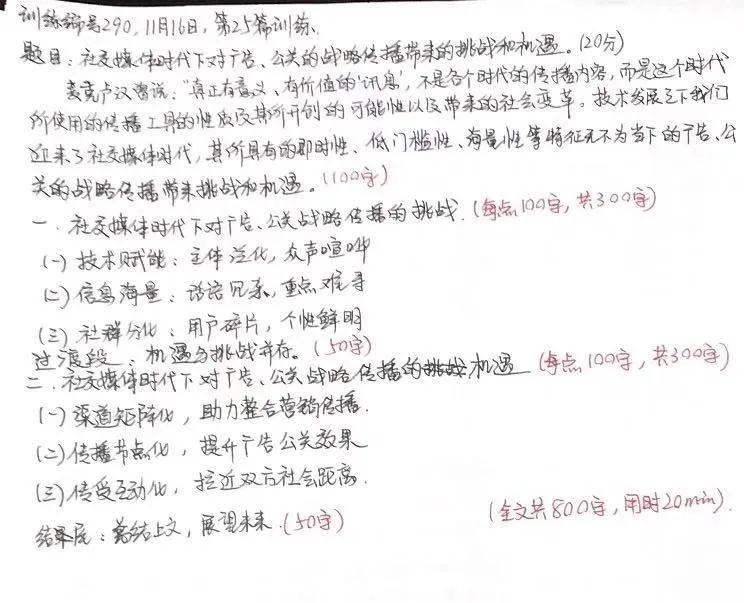 训练编号290，11月16日，第25篇训练.
题目：社交媒体时代下对广告、公关的战略传播带来的挑战和机遇。(20分)
麦克卢汉曾说："真正有意义、有价值的'讯息'，不是各个时代的传播内容，而是这个时代
所使用的传播工具的性质及其所开创的可能性以及带来的社会变革。技术发展之下我们
迎来了社交媒体时代，其所具有的即时性、低门槛性、海量性等特征无不为当下的广告、公
关的战略传播带来挑战和机遇。(100字)
一、社交媒体时代下对广告、公关战略传播的挑战.(每点100字，共300字)
(一)技术赋能：主体泛化，众声喧哗
(二)信息海量：话语冗杂，重点难寻
(三)社群分化：用户碎片，个性鲜明
过渡段：机遇与挑战并存。(50字)
二、社交媒体时代下对广告、公关战略传播的挑战机遇 (每点100字，共300字)
(一)渠道矩阵化，助力整合营销传播.
(二)传播节点化，提升广告公关效果
(三)传受互动化，拉近双方社会距离.
结尾：总结上文，展望未来.(50字) (全文共800字，用时20min).